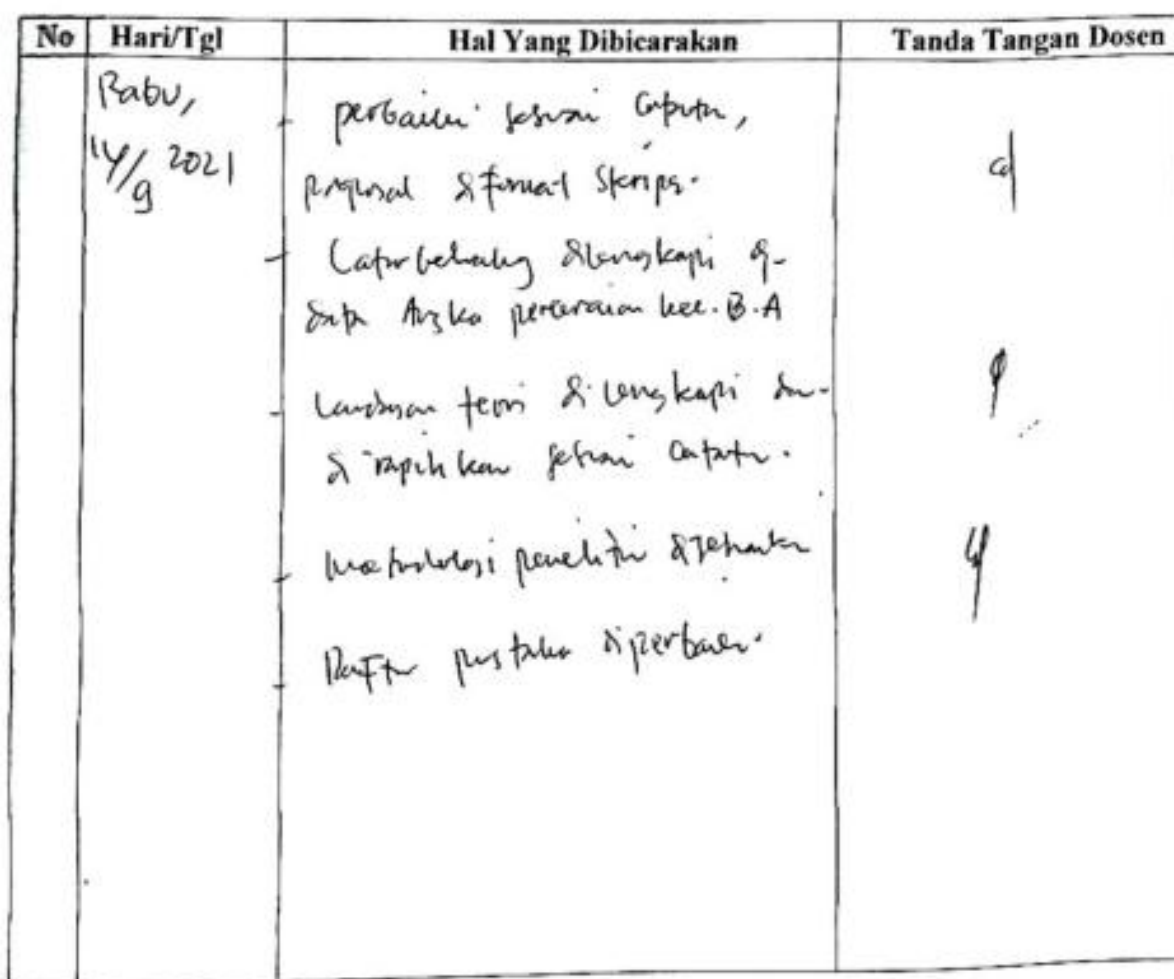 No Hari/Tgl Hal Yang Dibicarakan Tanda Tangan Dosen
Rabu,
14/9 2021
- perbaiki sesuai Catatan,
proposal di format Skripsi.
- Latar belakang dilengkapi dg-
data Angka perceraian kec. B.A
- Landasan teori di lengkapi dan
di rapihkan sesuai Catatan.
- Metodologi penelitian
- Daftar pustaka diperbaiki.